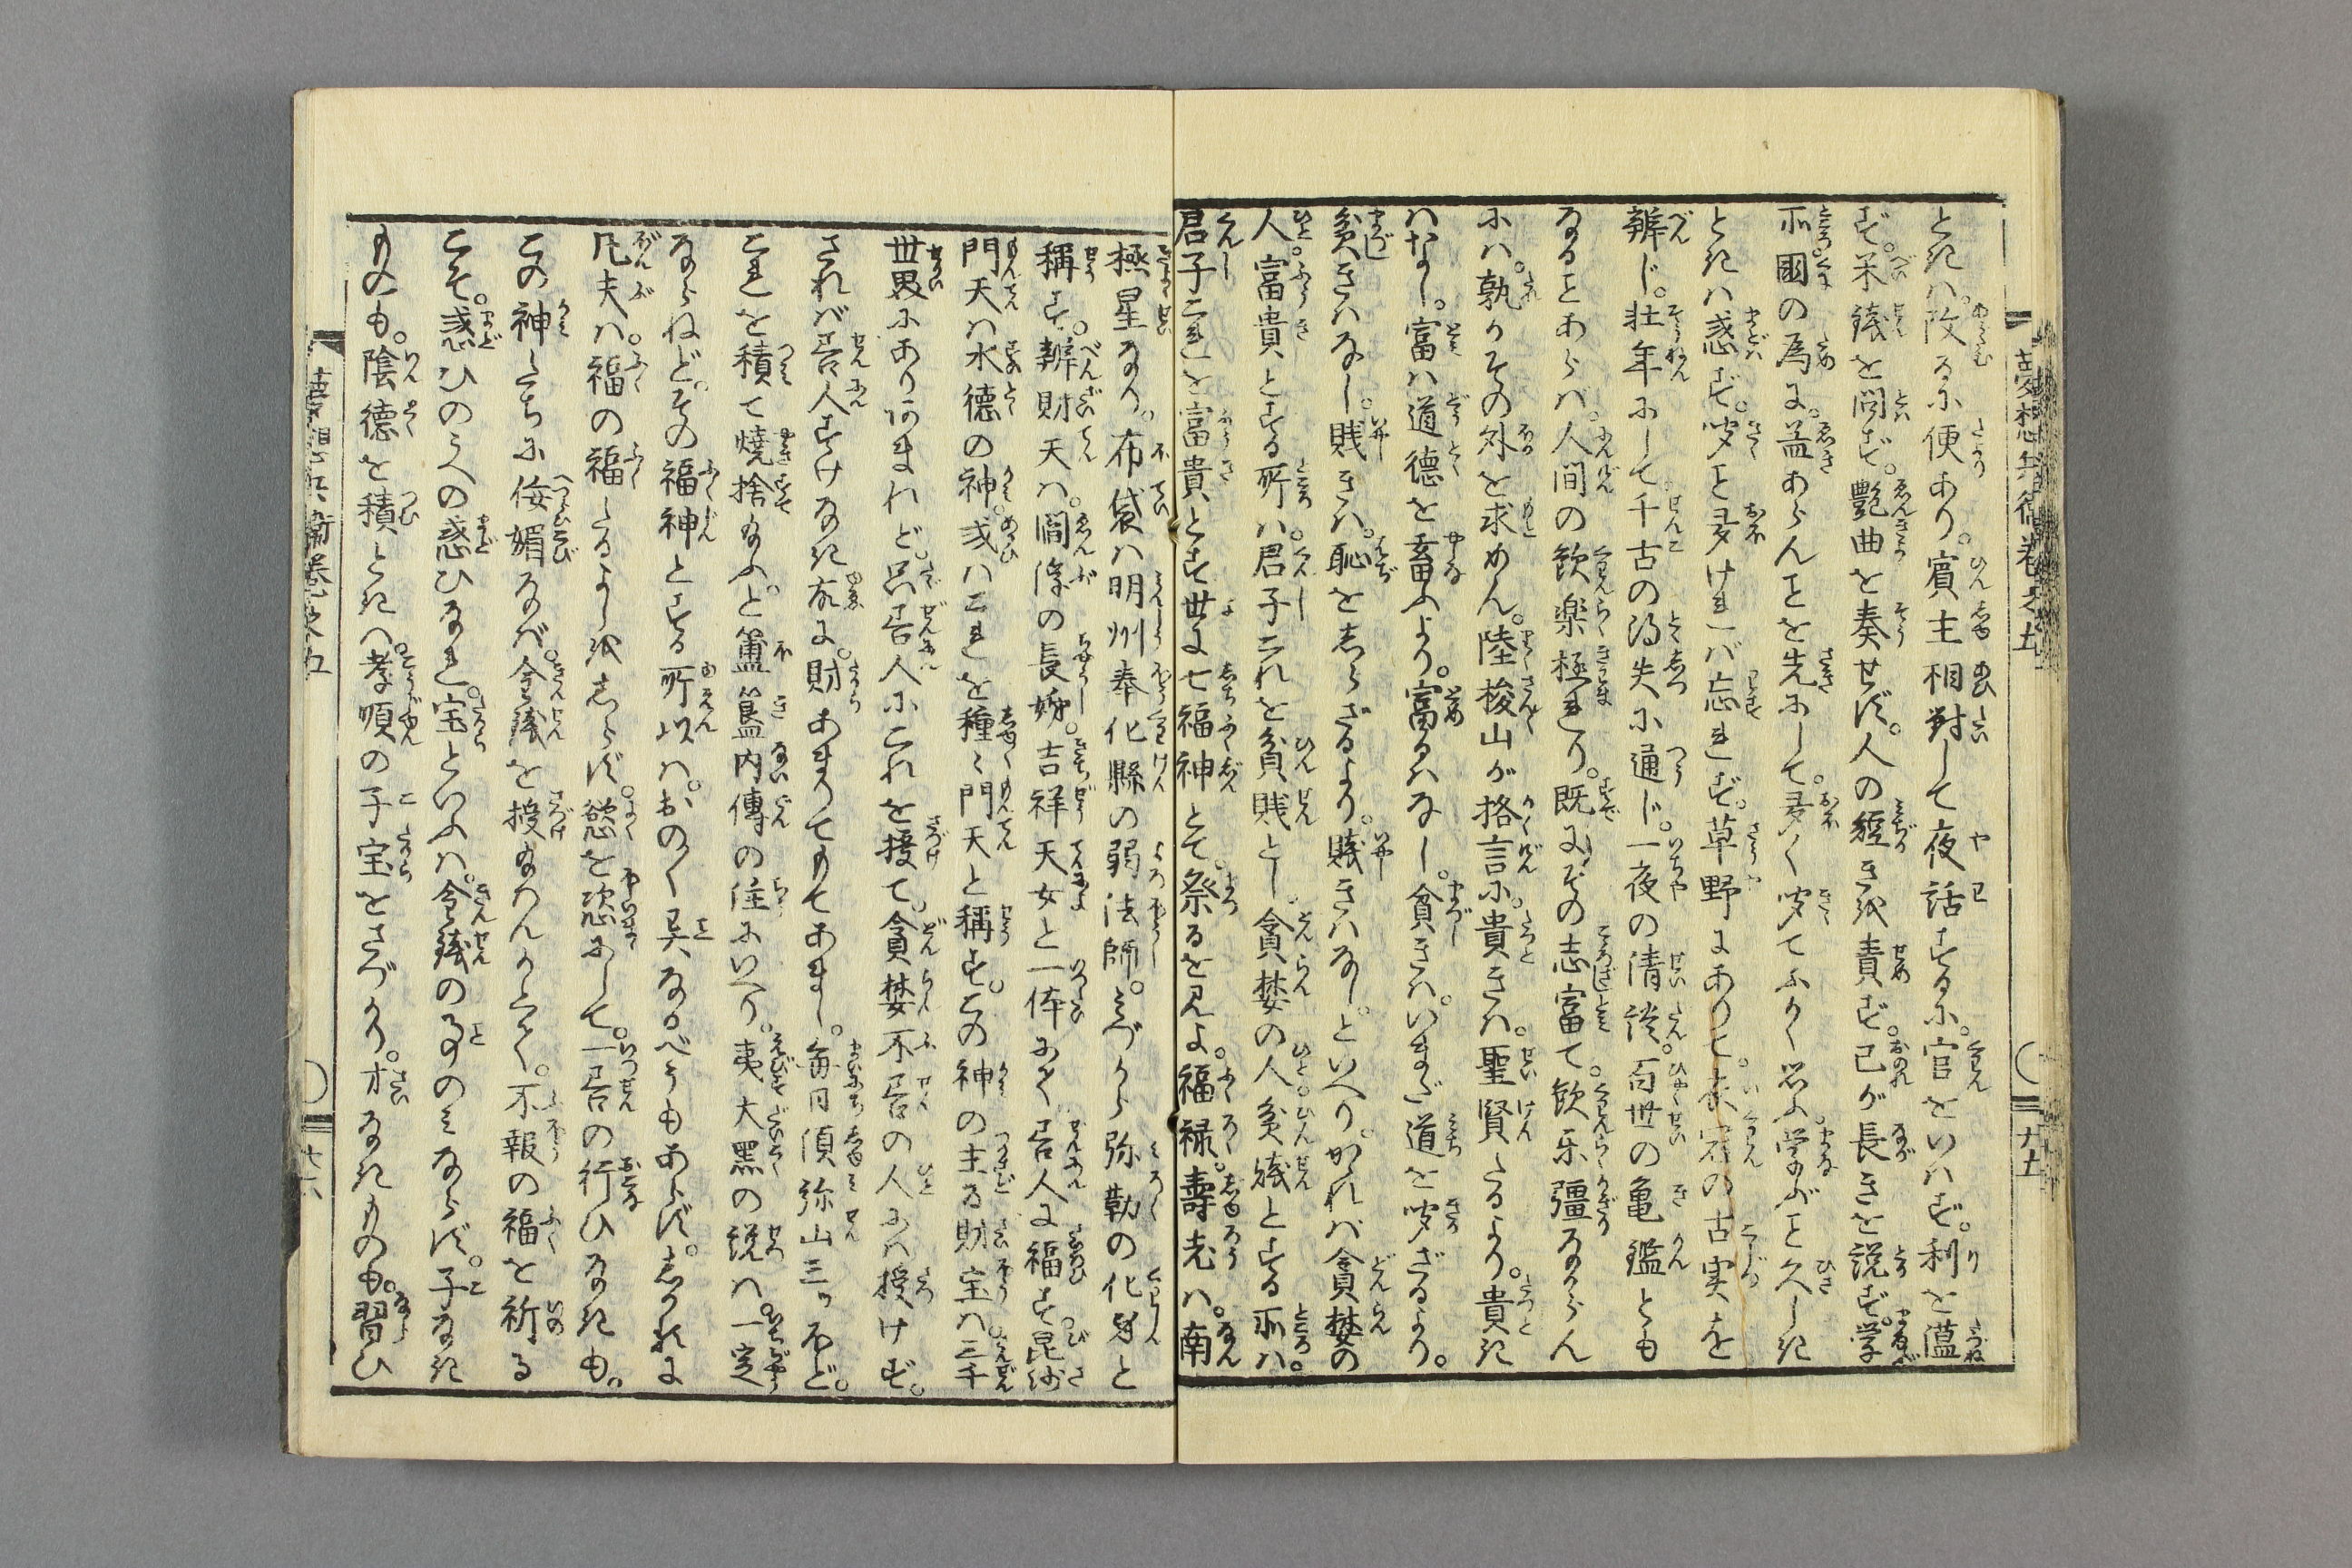 夢想兵衛巻之五
十五
とき〳〵改るに便あり。賓主相對して夜話するに。官をいはず。利を薀
ず。米錢を問ず。艶曲を奏せず。人の短きを責ず。己が長きを説ず。学
所國の為に。益あらんことを先にして。多く聞てふかく思ふ。学ぶこと久しき
ときハ惑ず。聞こと多けれバ忘れず。草野にありて。衣冠の古実を
辨じ。壮年にして千古の得失に通じ。一夜の清談。百世の亀鑑とも
なることあらバ。人間の歓楽極れり。既にその志富て。歓乐彊なからん
にハ。孰かその外を求めん。陸梭山が格言に。貴きハ。聖賢たるより。貴き
ハなし。富ハ道德を畜ふより。富るハなし。貧きハ。いまだ道を聞ざるより。
貧きハなし。賎きハ。恥をしらざるより。賎きハなし。といへり。かれバ貪婪の
人富貴とする所ハ。君子これを貧賎とし。貪婪の人貧賎とする所ハ。
君子これを富貴とす世に七福神とて。祭るを見よ。福禄。壽老ハ。南
極星なり。布袋ハ明州奉化縣の弱法師。みづから弥勒の化身と
稱す。辨財天ハ。閻浮の長姉。吉祥天女と一体にて善人に福す毘沙
門天ハ水德の神。或ハこれを種〻門天と稱す。この神の主る財宝ハ。三千
世界にありあまれど。只善人にこれを授て。貪婪不善の人にハ授けず。
されバ善人すけなき故に。財あまりてもてあまし。毎日須弥山三ッほど。
これを積て燒捨給ふと簠簋内傳の注にいへり。夷大黒の説ハ。一定
ならねど。その福神とする所以ハ。おの〳〵異なるべうもあらず。しかれに
凡夫ハ。福の福たるよしをしらず。慾を恣にして。一善の行ひなきも。
この神たちに侫媚なバ。金錢を授給はんかとて。不報の福を祈る
こそ。惑ひのうへの惑ひなれ。宝といふハ。金錢の事のみならず。子なき
ものも。陰德を積ときハ。孝順の子宝をさづかり。才なきものも。習ひ
夢想兵衛巻之五
十六